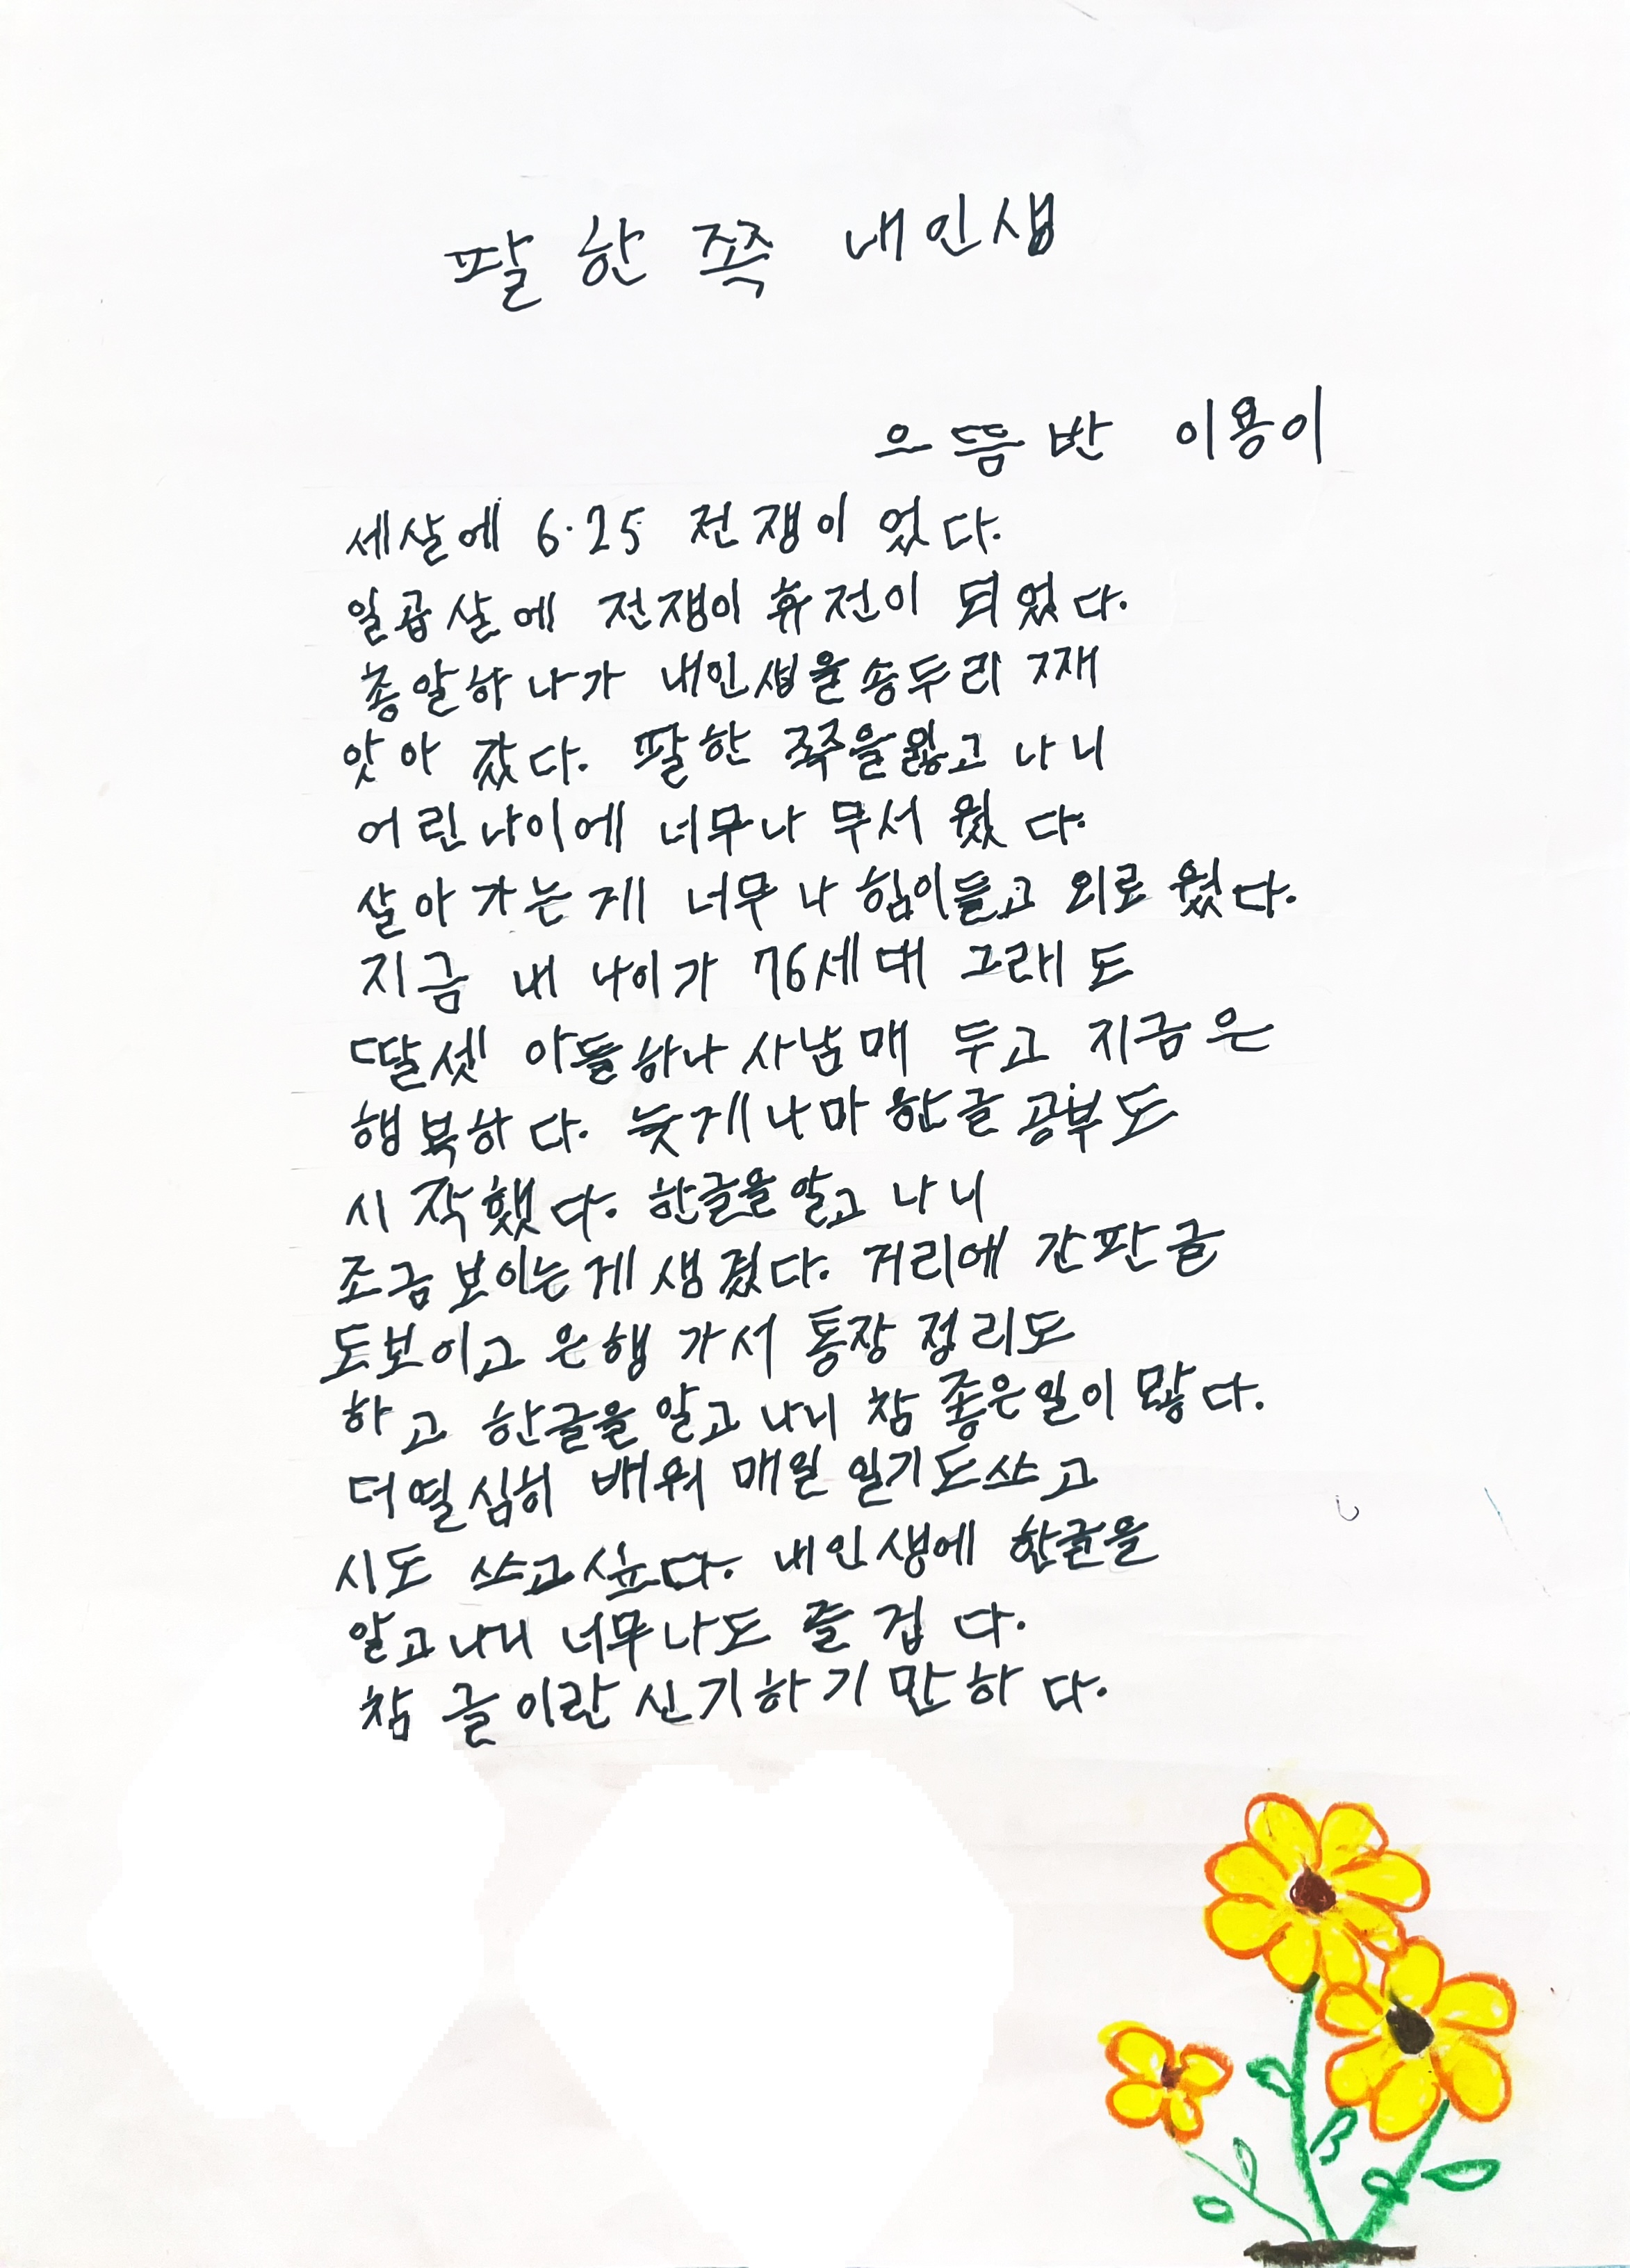 팔 한 쪽 내 인생
으뜸반 이용이
세살에 6·25 전쟁이 었다.
일곱살에 전쟁이 휴전이 되었다.
총알하나가 내인생을송두리 째
앗아 갔다. 팔한 쪽을잃고 나니
어린나이에 너무나 무서 웠 다.
살아 가는게 너무나 힘이들고 외로 웠다.
지금 내 나이가 76세 대 그래도
딸셋 아들하나 사남매 두고 지금은
행복하다. 늦게나마 한글 공부도
시작했다. 한글을알고 나니
조금보이는게 생겼다. 거리에 간판글
도보이고 은행 가서 통장 정리도
하고 한글을 알고나니 참 좋은일이 많다.
더열심히 배워 매일 일기도쓰고
시도 쓰고싶다. 내인생에 한글을
알고나니 너무나도 즐겁다.
참 글이란 신기하기만하다.